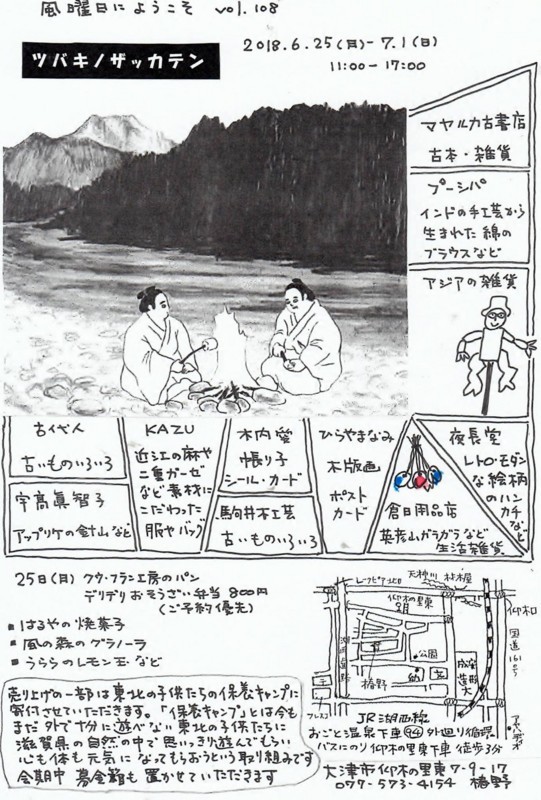 風曜日にようこそ vol.108
ツバキノザッカテン
2018.6.25(月)-7.1(日)
11:00-17:00
マヤルカ古書店
古本・雑貨
プーシパ
インドの手工芸から
生まれた綿の
ブラウスなど
アジアの雑貨
古代人
古いものいろいろ
宇高真智子
アップリケの針山など
KAZU
近江の麻や
二重ガーゼ
など素材に
こだわった
服やバッグ
木内愛
帳り子
シール・カード
駒井木工芸
古いものいろいろ
ひらやまなみ
木版画
ポスト
カード
倉日用品店
英彦山ガラガラなど
生活雑貨
夜長堂
レトロ・モダン
な絵柄
のハン
カチなど
25日(月) クウ・フラン工房のパン
デリデリおそうざい弁当 800円
(ご予約優先)
■はるやの焼菓子
■風の森のグラノーラ
■うららのレモン玉など
売り上げの一部は東北の子供たちの保養キャンプに
寄付させていただきます。「保養キャンプ」とは今も
まだ外で十分に遊べない東北の子供たちに
滋賀県の自然の中で思いっきり遊んでもらい
心も体も元気になってもらおうという取り組みです
会期中 募金箱も置かせていただきます
天神川
仰木の里東
仰木口
国道161号
公園
椿野
成安造形大
JR湖西線
おごと温泉下車 94 外回り循環
バスにのり仰木の里東下車 徒歩3分
大津市仰木の里東7-9-17
077-573-4154 椿野